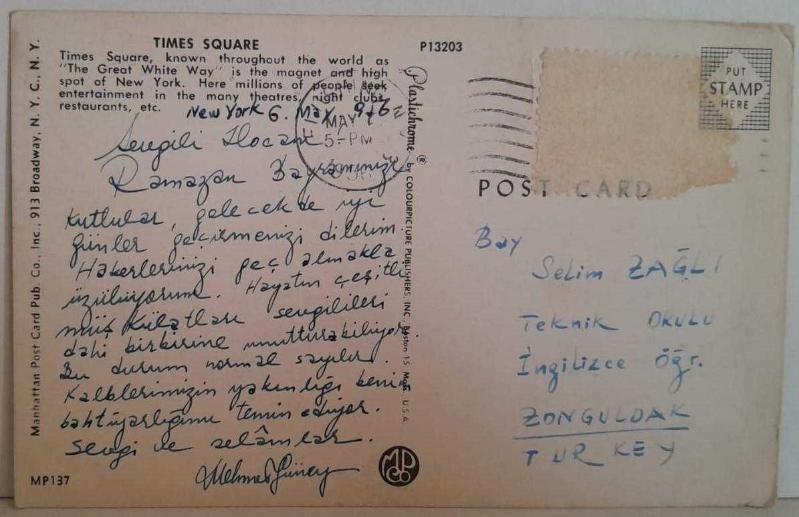 TIMES SQUARE
P13203
Times Square, known throughout the world as
"The Great White Way" is the magnet and high
spot of New York. Here millions of people seek
entertainment in the many theatres, night clubs,
restaurants, etc.
New York 6. May
MAY
5-PM
Sevgili Hocam,
Ramazan Bayramınızı
kutlular, gelecekde iyi
günler geçirmenizi dilerim.
Haberlerinizi geç almakla
üzülüyorum. Hayatın çeşitli
müşkülatları sevgilileri
dahi birbirine unutturabiliyor.
Bu durum normal sayılır.
Kalblerimizin yakınlığı beni
bahtiyarlığımı temin ediyor.
Sevgi ve selâmlar.
Mehmet Güney
MP137
MP
CO
Manhattan Post Card Pub. Co., Inc., 913 Broadway, N. Y. C., N. Y.
Plastichrome ® by COLOURPICTURE PUBLISHERS, INC., Boston 15, Mass., U.S.A.
PUT
STAMP
HERE
POST CARD
Bay
Selim ZAĞLI
Teknik OKULU
İngilizce Öğr.
ZONGULDAK
TURKEY